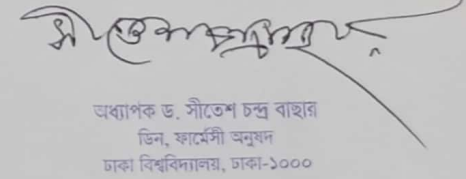 সীতেশ চন্দ্র বাছার
অধ্যাপক ড. সীতেশ চন্দ্র বাছার
ডিন, ফার্মেসী অনুষদ
ঢাকা বিশ্ববিদ্যালয়, ঢাকা-১০০০